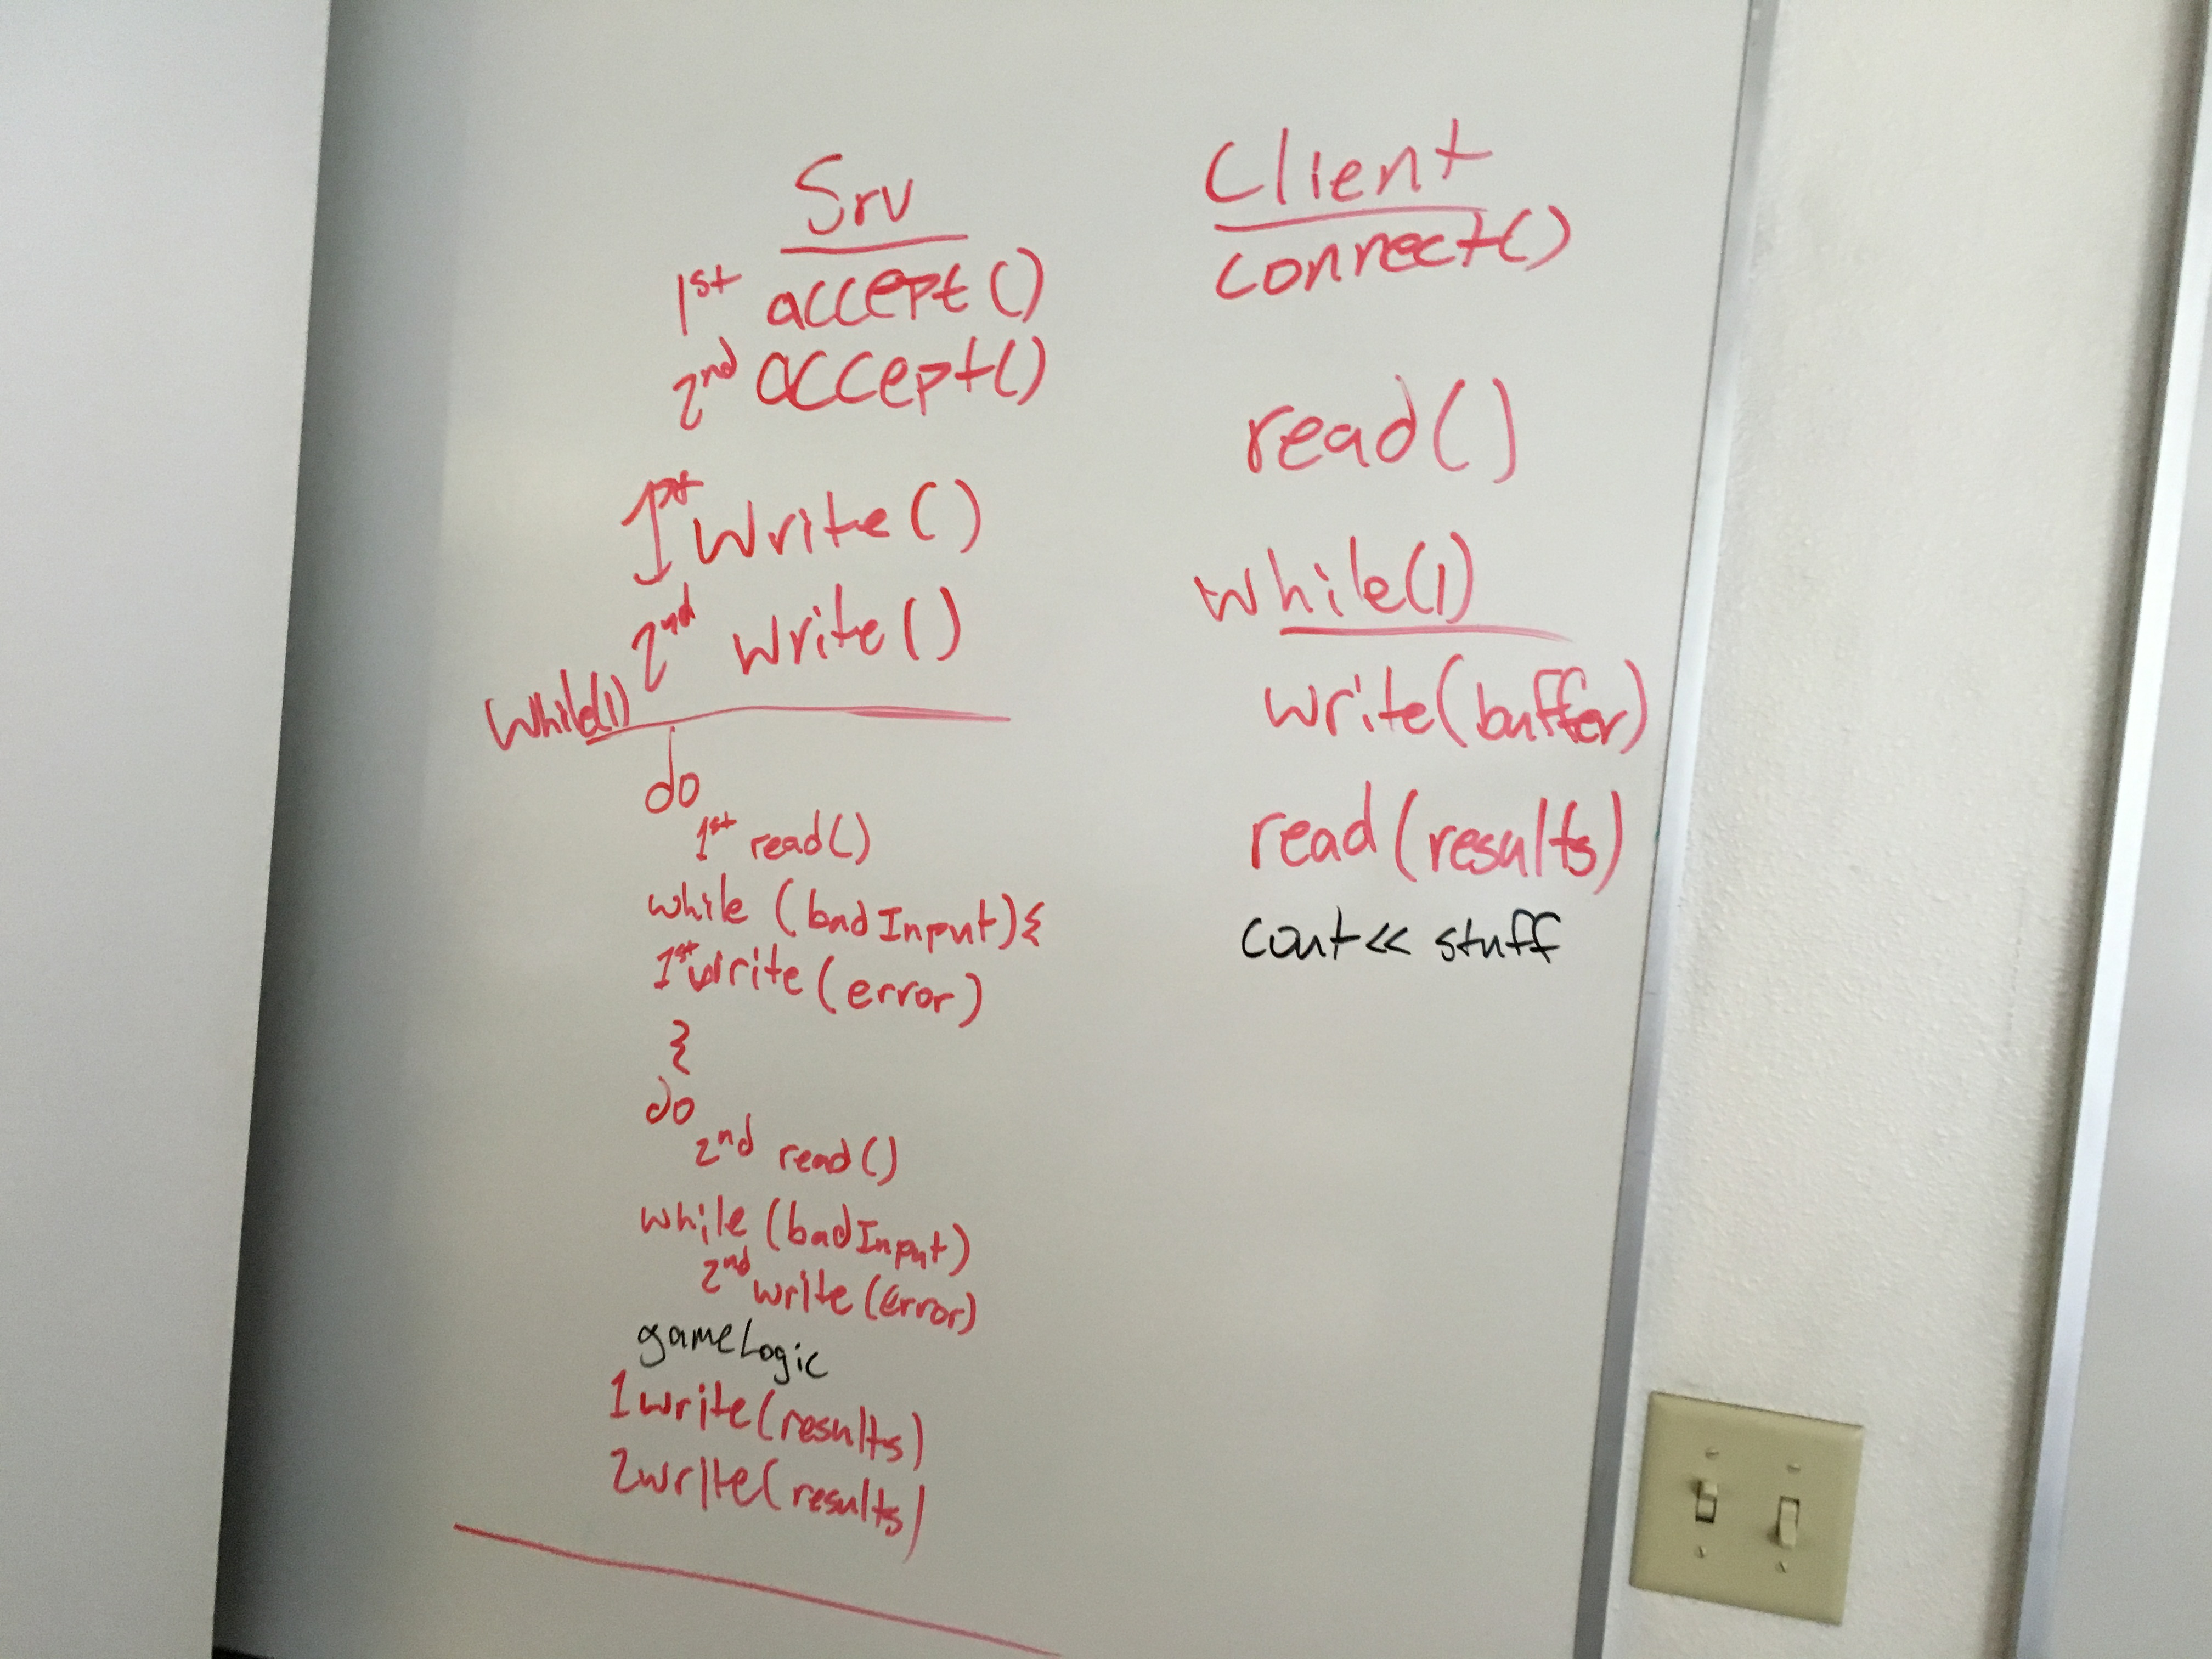 Srv
1st accept()
2nd accept()
1st write()
2nd write()
while(1)
do
1st read()
while (badInput){
1st write(error)
}
do
2nd read()
while (badInput)
2nd write(Error)
gameLogic
1 write(results)
2 write(results)
Client
connect()
read()
while(1)
write(buffer)
read(results)
cout<< stuff